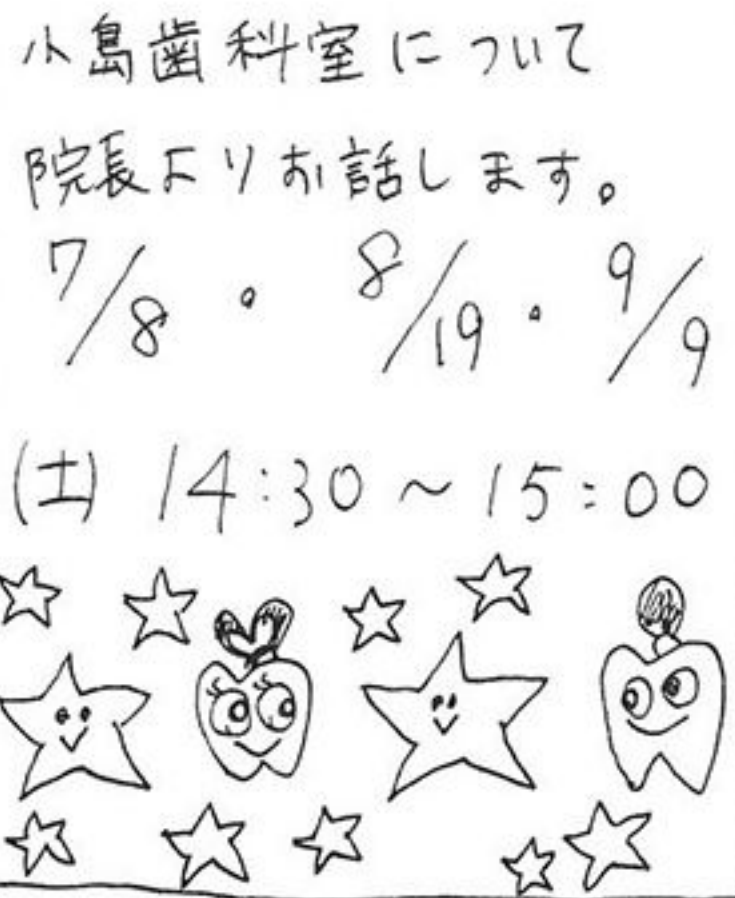 小島歯科室について
院長よりお話します。
7/8・8/19・9/9
(土) 14:30～15:00